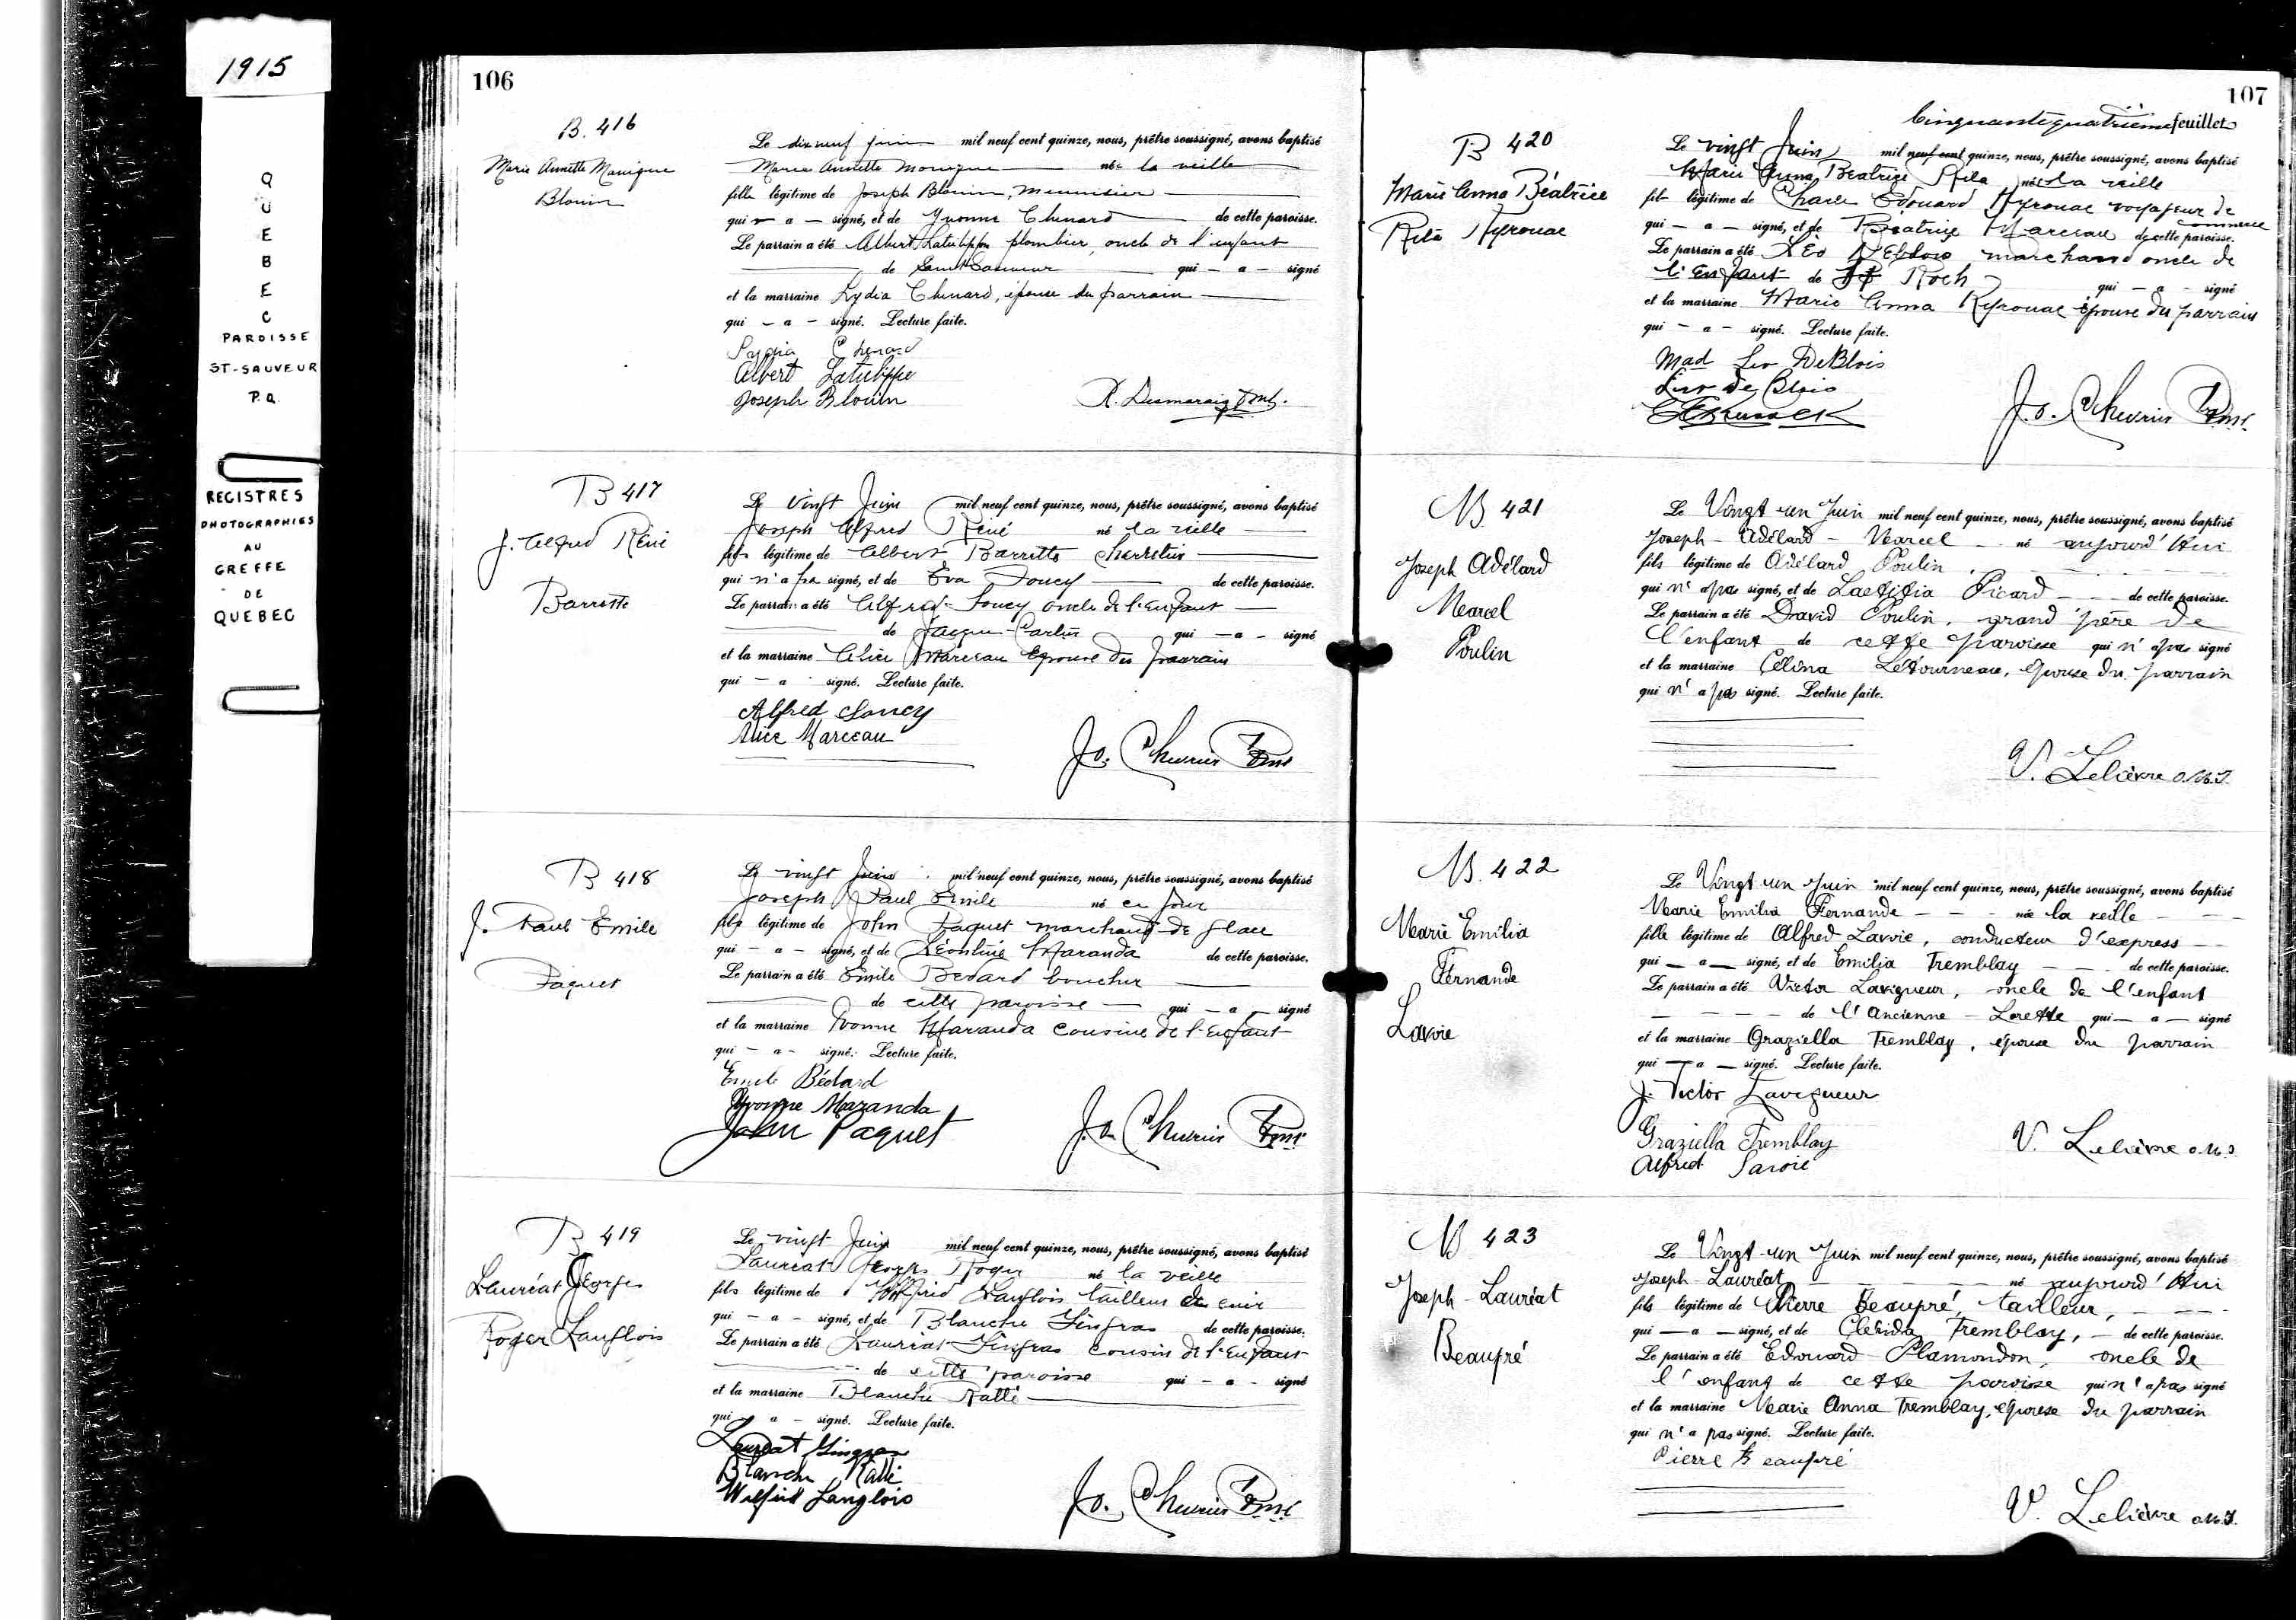 1915
QUEBEC
PAROISSE
ST-SAUVEUR
P.Q.
REGISTRES
PHOTOGRAPHIES
AU
GREFFE
DE
QUEBEC
106
B. 416
Marie Annette Monique
Blouin
Le dix neuf juin mil neuf cent quinze, nous, prêtre soussigné, avons baptisé
Marie Annette Monique née la veille
fille légitime de Joseph Blouin, menuisier
qui - a - signé, et de Yvonne Chenard de cette paroisse.
Le parrain a été Albert Latulippe plombier, oncle de l'enfant
de Saint Sauveur qui - a - signé
et la marraine Lydia Chenard, épouse du parrain
qui - a - signé. Lecture faite.
Lydia Chenard
Albert Latulippe
Joseph Blouin
R. Desmarais omi.
B 417
J. Alfred Réné
Barrette
Le vingt Juin mil neuf cent quinze, nous, prêtre soussigné, avons baptisé
Joseph Alfred Réné né la veille
fils légitime de Albert Barrette charretier
qui n'a pa signé, et de Eva Soucy de cette paroisse.
Le parrain a été Alfred Soucy oncle de l'enfant
de Jacques-Cartier qui - a - signé
et la marraine Alice Marceau Epouse du parrain
qui - a - signé. Lecture faite.
Alfred Soucy
Alice Marceau
Jo. Chevrier Omi
B 418
J. Paul Emile
Paquet
Le vingt Juin mil neuf cent quinze, nous, prêtre soussigné, avons baptisé
Joseph Paul Emile né ce jour
fils légitime de John Paquet marchand de glace
qui - a - signé, et de Léontine Maranda de cette paroisse.
Le parrain a été Emile Bedard boucher
de cette paroisse qui - a - signé
et la marraine Yvonne Maranda cousine de l'Enfant
qui - a - signé. Lecture faite.
Emile Bédard
Yvonne Maranda
John Paquet
J.o. Chevrier Omi
B 419
Lauréat Georges
Roger Langlois
Le vingt Juin mil neuf cent quinze, nous, prêtre soussigné, avons baptisé
Lauréat Georges Roger né la veille
fils légitime de Wilfrid Langlois tailleur de cuir
qui - a - signé, et de Blanche Gingras de cette paroisse.
Le parrain a été Lauréat Gingras cousin de l'Enfant
de cette paroisse qui - a - signé
et la marraine Blanche Ratté
qui - a - signé. Lecture faite.
Lauréat Gingras
Blanche Ratté
Wilfrid Langlois
Jo. Chevrier Omi
107
Cinquante quatrième feuillet
B 420
Marie Anna Béatrice
Rita Kyrouac
Le vingt Juin mil neuf cent quinze, nous, prêtre soussigné, avons baptisé
Marie Anna Béatrice Rita née la veille
fille légitime de Charles Edouard Kyrouac voyageur de
commerce
qui - a - signé, et de Béatrice Marceau de cette paroisse.
Le parrain a été Léo DeBlois marchand oncle de
l'Enfant de St Roch qui - a - signé
et la marraine Marie Anna Kyrouac épouse du parrain
qui - a - signé. Lecture faite.
Mad Leo DeBlois
Leo de Blois
J.o. Chevrier Omi.
B. 421
Joseph Adélard
Marcel
Poulin
Le Vingt-un Juin mil neuf cent quinze, nous, prêtre soussigné, avons baptisé
Joseph - Adélard - Marcel né aujourd'hui
fils légitime de Adélard Poulin
qui n'a pas signé, et de Laetitia Picard de cette paroisse.
Le parrain a été David Poulin, grand'père de
l'enfant de cette paroisse qui n'a pas signé
et la marraine Célina Létourneau, épouse du parrain
qui n'a pas signé. Lecture faite.
V. Lelièvre o.m.i.
B. 422
Marie Emilia
Fernande
Lavoie
Le Vingt-un Juin mil neuf cent quinze, nous, prêtre soussigné, avons baptisé
Marie Emilia Fernande née la veille
fille légitime de Alfred Lavoie, conducteur d'express
qui - a - signé, et de Emilia Tremblay de cette paroisse.
Le parrain a été Victor Lavigueur, oncle de l'enfant
de l'Ancienne - Lorette qui - a - signé
et la marraine Graziella Tremblay, épouse du parrain
qui - a - signé. Lecture faite.
J. Victor Lavigueur
Graziella Tremblay
Alfred Lavoie
V. Lelièvre o.m.i.
B 423
Joseph - Lauréat
Beaupré
Le Vingt-un Juin mil neuf cent quinze, nous, prêtre soussigné, avons baptisé
Joseph - Lauréat né aujourd'hui
fils légitime de Pierre Beaupré, tailleur,
qui - a - signé, et de Clérida Tremblay, - de cette paroisse.
Le parrain a été Edouard Plamondon, oncle de
l'enfant de cette paroisse qui n'a pas signé
et la marraine Marie Anna Tremblay, épouse du parrain
qui n'a pas signé. Lecture faite.
Pierre Beaupré
V. Lelièvre o.m.i.